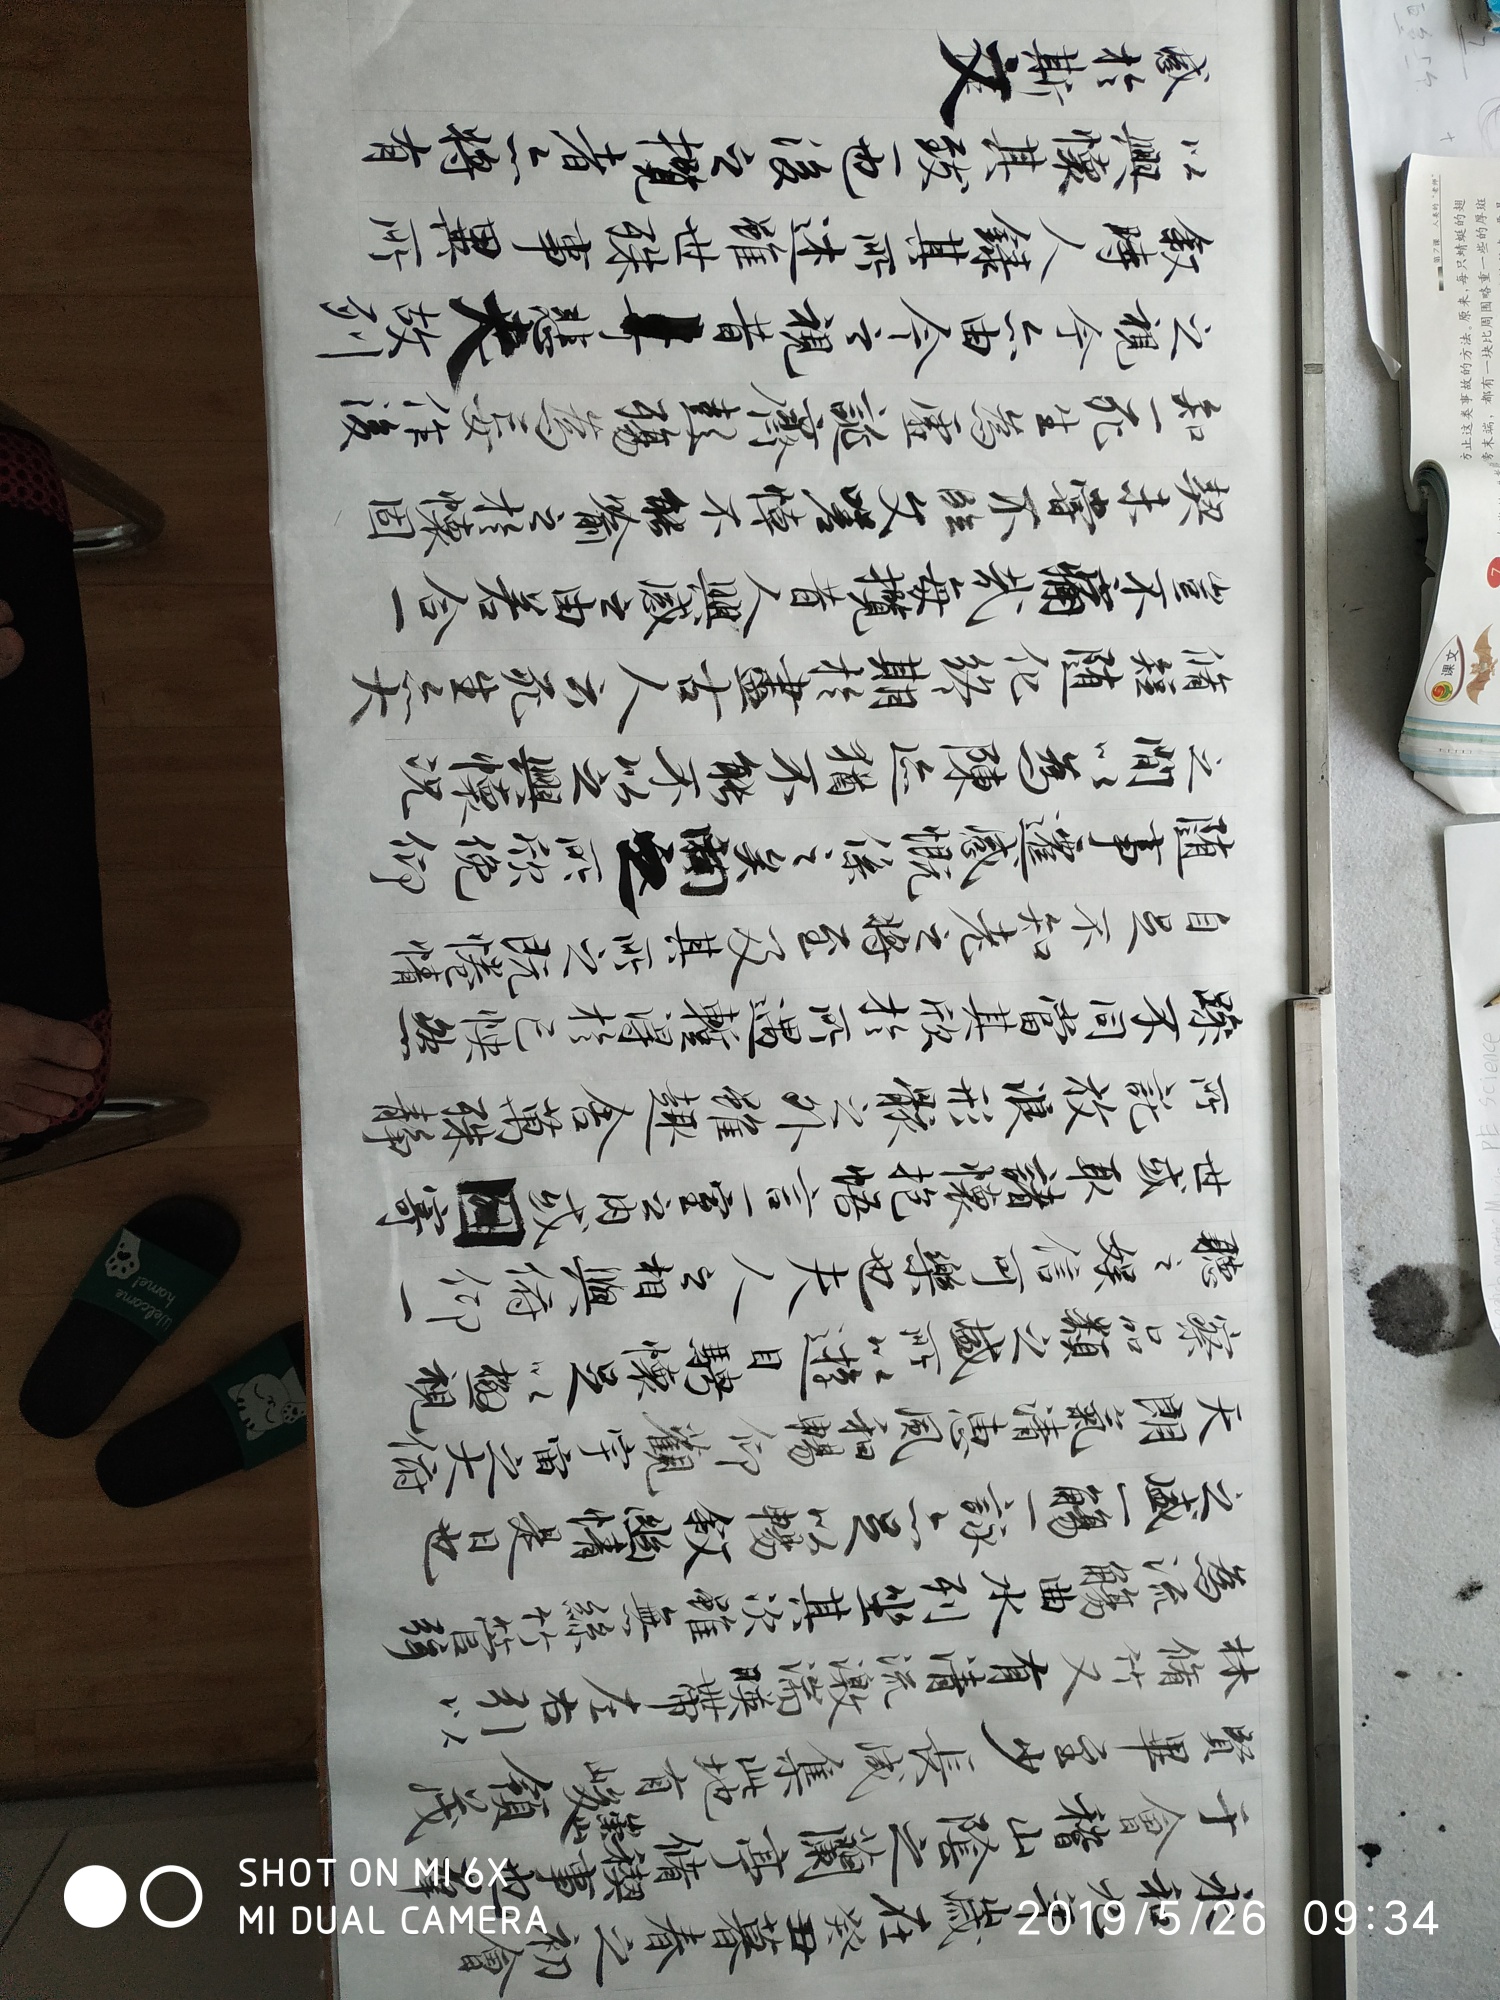 永和九年歲在癸丑暮春之初會
于會稽山陰之蘭亭脩稧事也群
賢畢至少長咸集此地有崇山峻領茂
林脩竹又有清流激湍暎帶左右引以
為流觴曲水列坐其次雖無絲竹管弦
之盛一觴一詠亦足以暢敘幽情是日也
天朗氣清惠風和暢仰觀宇宙之大俯
察品類之盛所以遊目騁懷足以極視
聽之娛信可樂也夫人之相與俯仰一
世或取諸懷抱悟言一室之內或因寄
所託放浪形骸之外雖趣舍萬殊靜
躁不同當其欣於所遇暫得於己怏然
自足不知老之將至及其所之既惓情
隨事遷感慨係之矣向之所欣俛仰
之間以為陳迹猶不能不以之興懷況
脩短隨化終期於盡古人云死生亦大
豈不痛哉每攬昔人興感之由若合一
契未嘗不臨文嗟悼不能喻之於懷固
知一死生為虛誕齊彭殤為妄作後
之視今亦由今之視昔悲夫故列
敘時人錄其所述雖世殊事異所
以興懷其致一也後之攬者亦將有
感於斯文
方止这类事故的方法。原来，每只蜻蜓的翅
旁末端，都有一块比周围略重一些的厚斑
课文
Welcome
home!
PE Science
SHOT ON MI 6X
MI DUAL CAMERA
2019/5/26 09:34